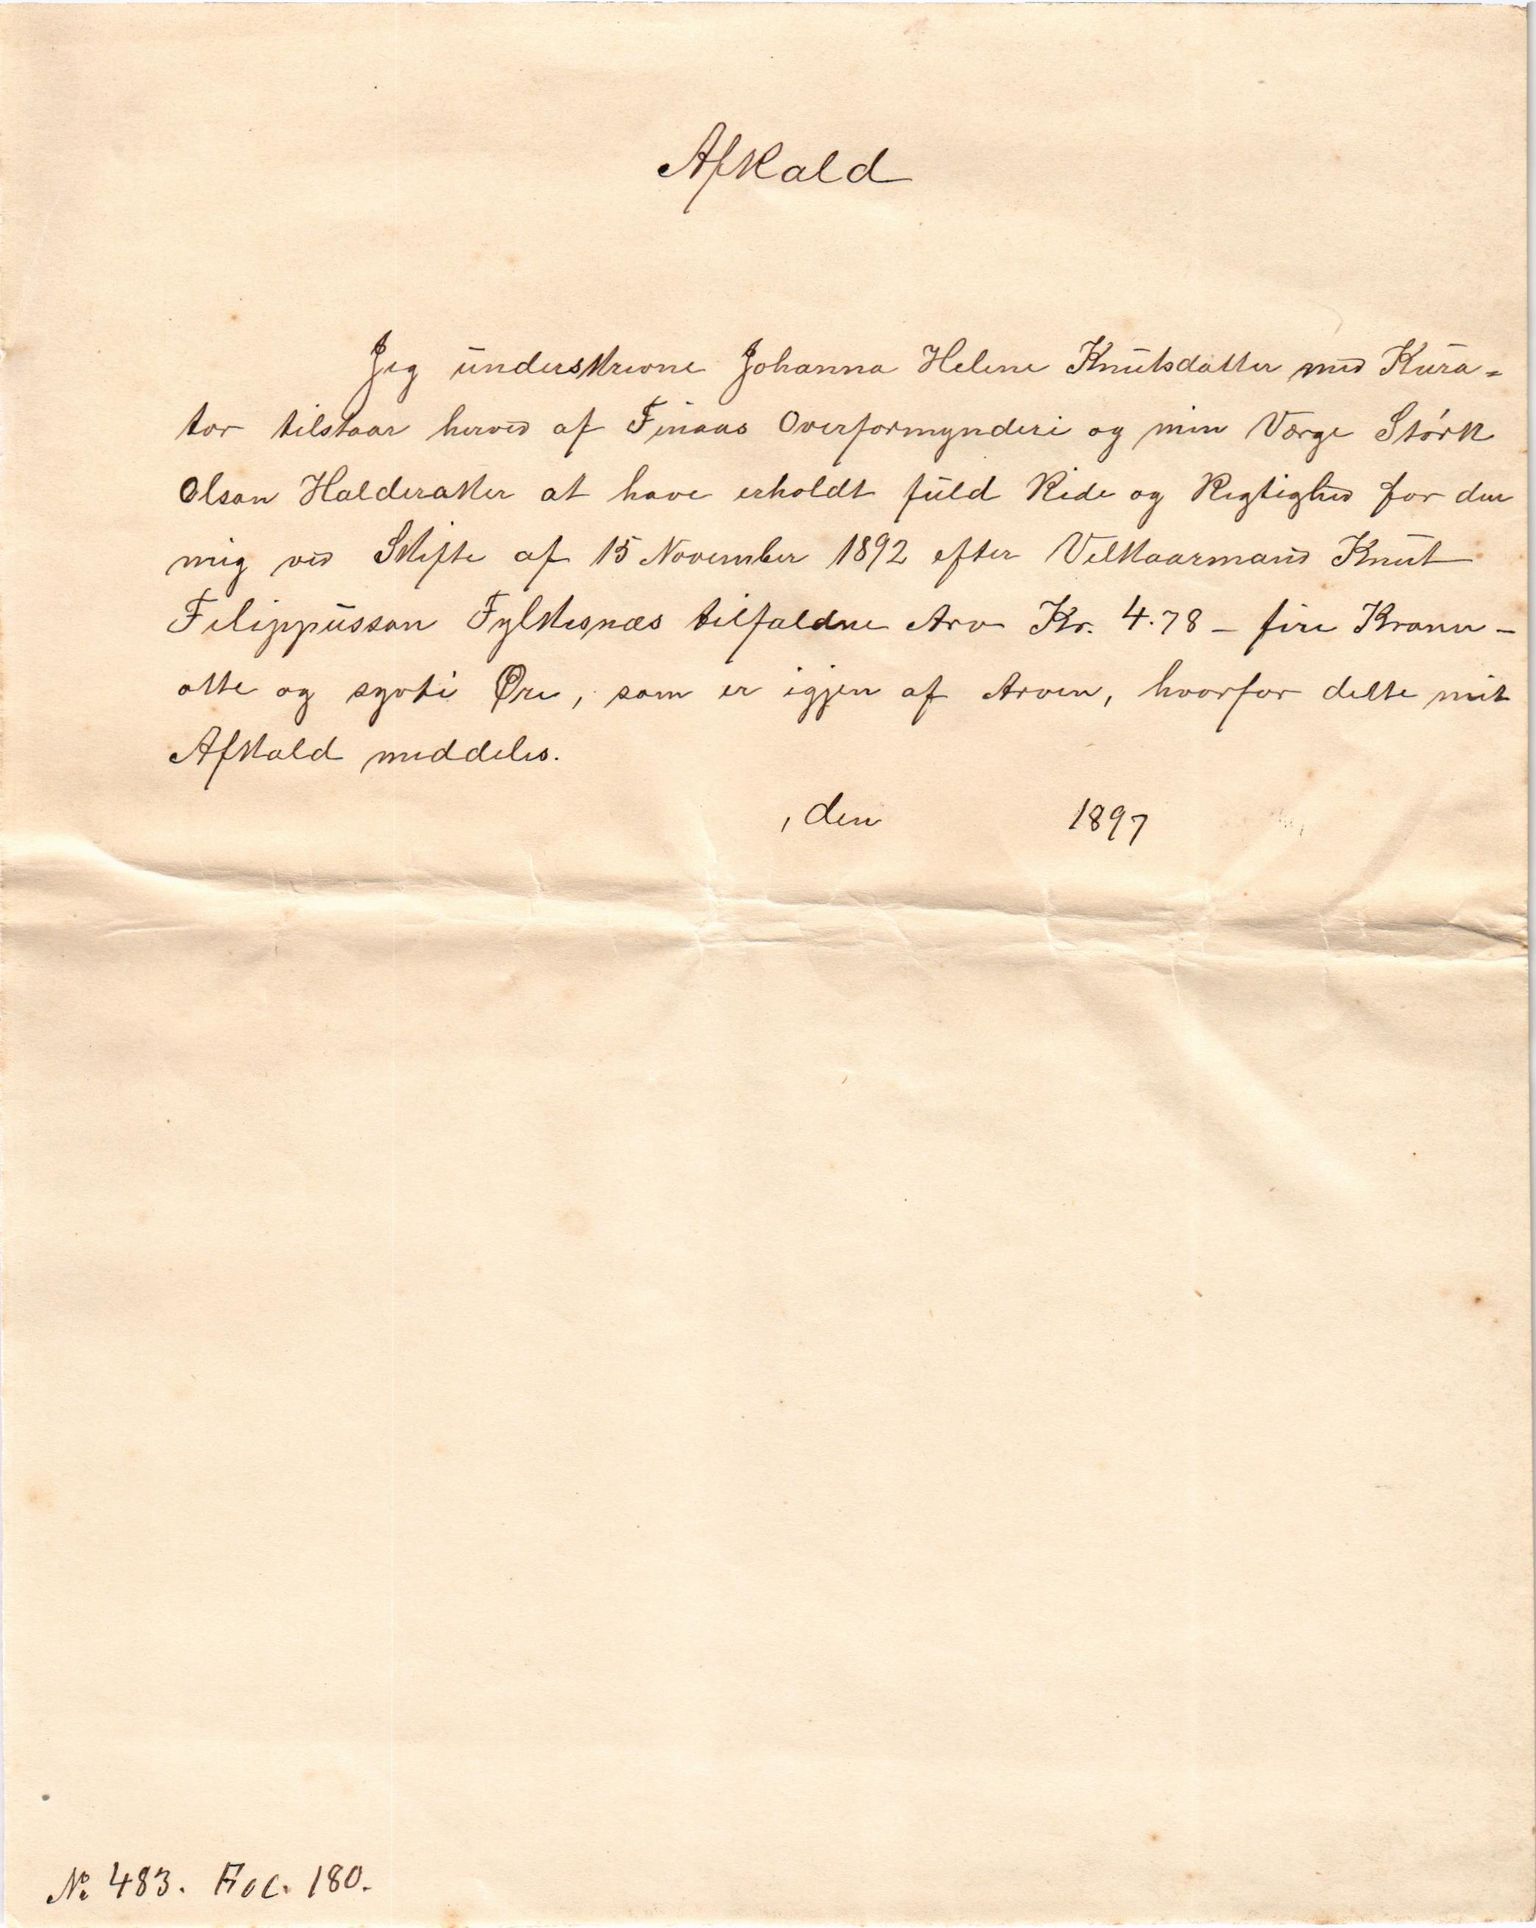 Afkald
Jeg underskrevne Johanna Helene Knutsdatter med Kura=
tor tilstaar herved af Finaas Overformynderi og min Værge Størk
Olson Halderaker at have erholdt fuld Rede og Rigtighed for den
mig ved Skifte af 15 November 1892 efter Velkaarmand Knut
Filippusson Fylkesnæs tilfaldne Arv Kr. 4.78 – fire Kroner –
otte og sytti Øre, som er igjen af Arven, hvorfor dette mit
Afkald meddeles.
, den 1897
No. 483. Fol. 180.